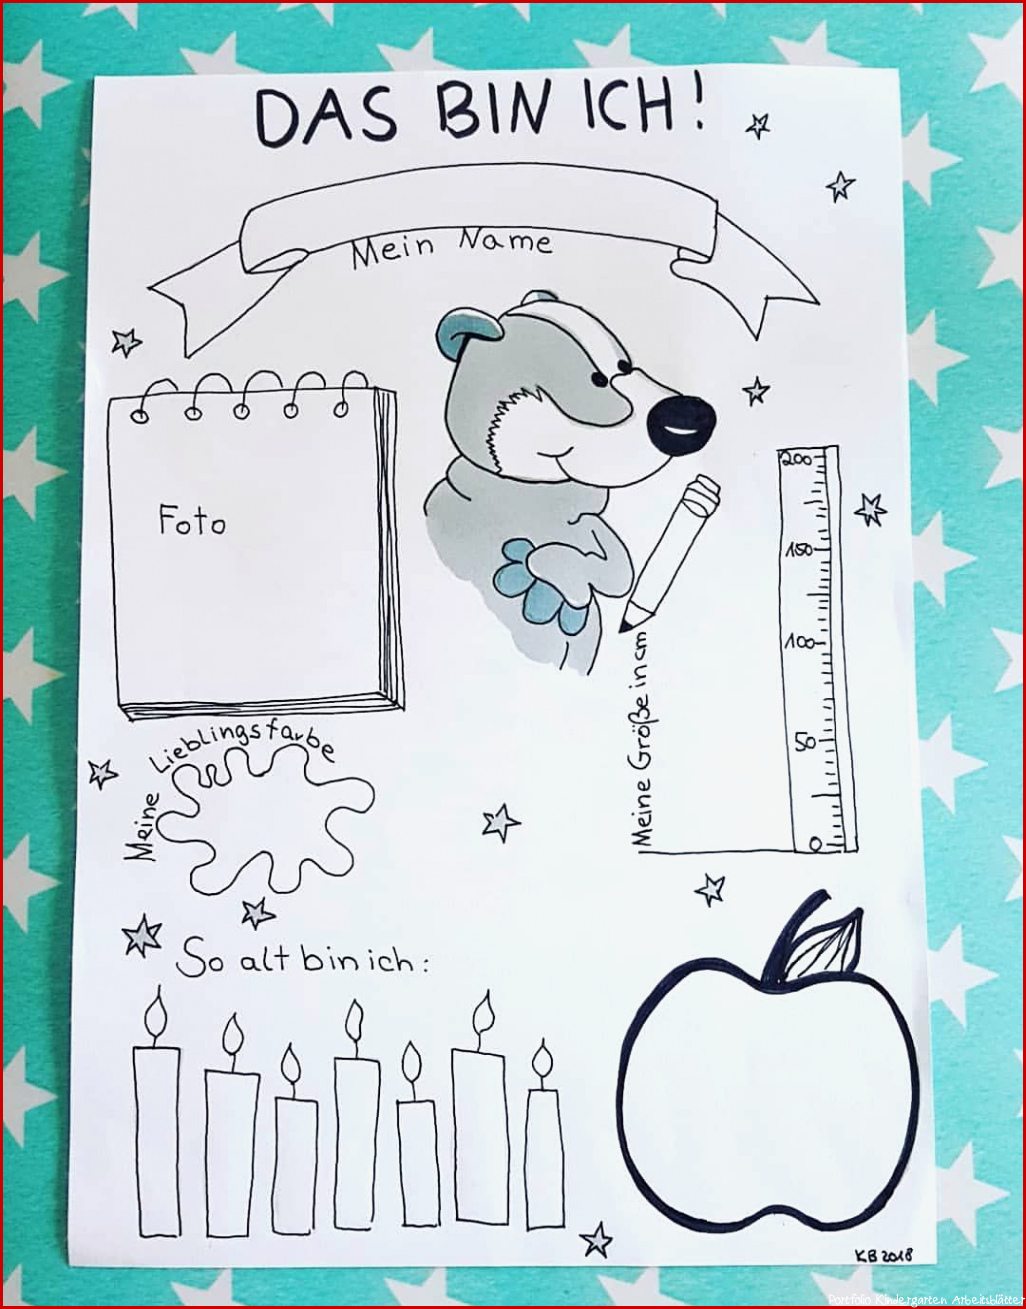 DAS BIN ICH!
Mein Name
Foto
200
150
100
50
0
Meine Größe in cm
Meine Lieblingsfarbe
So alt bin ich:
KB 2018
Portfolio Kindergarten Arbeitsblätter